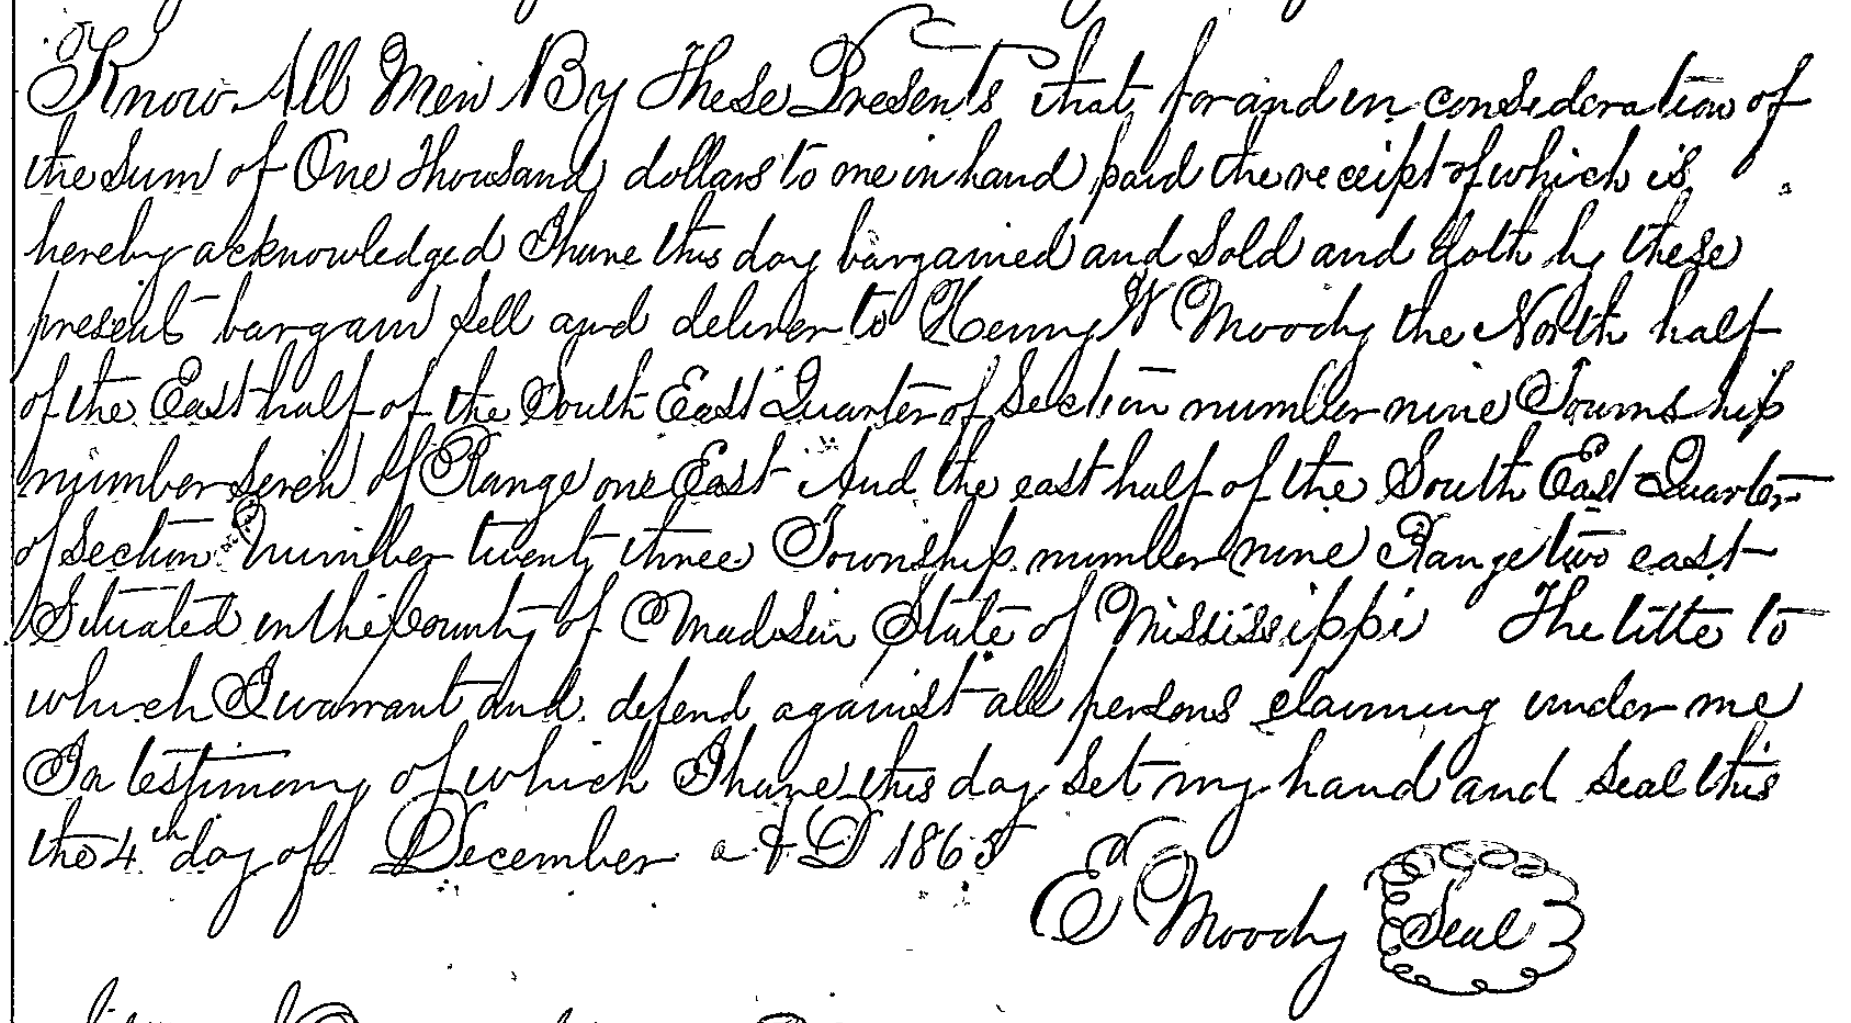 Know All Men By These Presents that for and in consideration of
the sum of One Thousand dollars to me in hand paid the receipt of which is
hereby acknowledged I have this day bargained and sold and doth by these
presents bargain sell and deliver to Henry W Moody the North half
of the East half of the South East Quarter of Section number nine Township
number seven of Range one East And the east half of the South East Quarter
of Section number twenty three Township number nine Range two east
Situated in the County of Madison State of Mississippi The title to
which I warrant and defend against all persons claiming under me
In testimony of which I have this day set my hand and seal this
the 4th day of December A D 1865
E Moody Seal